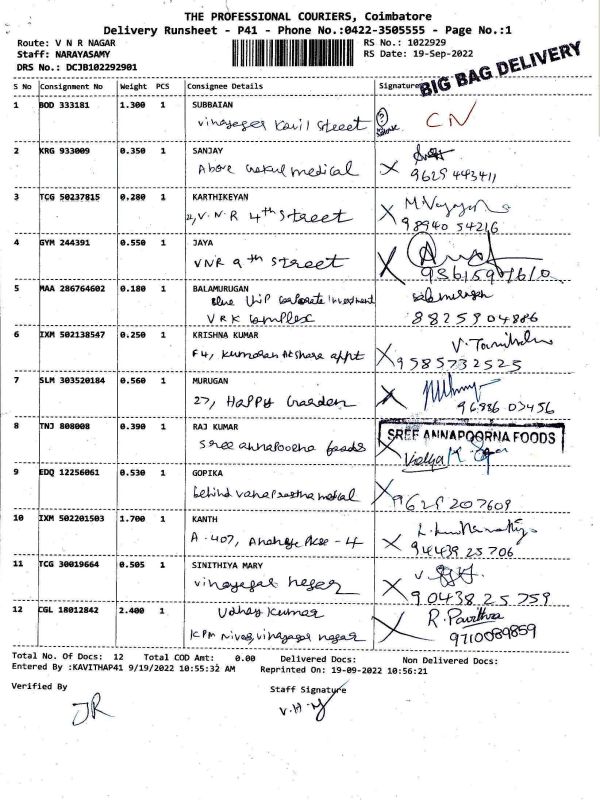 THE PROFESSIONAL COURIERS, Coimbatore
Delivery Runsheet - P41 - Phone No.:0422-3505555 - Page No.:1
Route: V N R NAGAR RS No.: 1022929
Staff: NARAYASAMY RS Date: 19-Sep-2022
DRS No.: DCJB102292901
BIG BAG DELIVERY
S No Consignment No Weight PCS Consignee Details Signature
1 BOD 333181 1.300 1 SUBBAIAN
Kovil street CN
2 KRG 933009 0.350 1 SANJAY
Above Gokul medical 9629 443411
3 TCG 50237815 0.280 1 KARTHIKEYAN
V.N.R 4th Street 98940 54216
4 GYM 244391 0.550 1 JAYA
VNR 9th street
5 MAA 286764602 0.180 1 BALAMURUGAN
Blue chip corporate Investment
VRK complex 88259 04886
6 IXM 502138547 0.250 1 KRISHNA KUMAR
F4, Kumaran Akshara appt 9585732525
7 SLM 303520184 0.560 1 MURUGAN
27, Happy Garden 03456
8 TNJ 808008 0.390 1 RAJ KUMAR
SREE ANNAPOORNA FOODS
Sree annapoorna foods Vidya
9 EDQ 12256061 0.530 1 GOPIKA
behind vanaprastha 9629 207609
10 IXM 502201503 1.700 1 KANTH
A-407, 94439 25706
11 TCG 30019664 0.505 1 SINITHIYA MARY
vinayagar nagar 90438 25759
12 CGL 18012842 2.400 1 Udhay Kumar R. Pavithra
KPM Nivas, vinayagar nagar 9710089859
Total No. Of Docs: 12 Total COD Amt: 0.00 Delivered Docs: Non Delivered Docs:
Entered By :KAVITHAP41 9/19/2022 10:55:32 AM Reprinted On: 19-09-2022 10:56:21
Verified By Staff Signature
JR